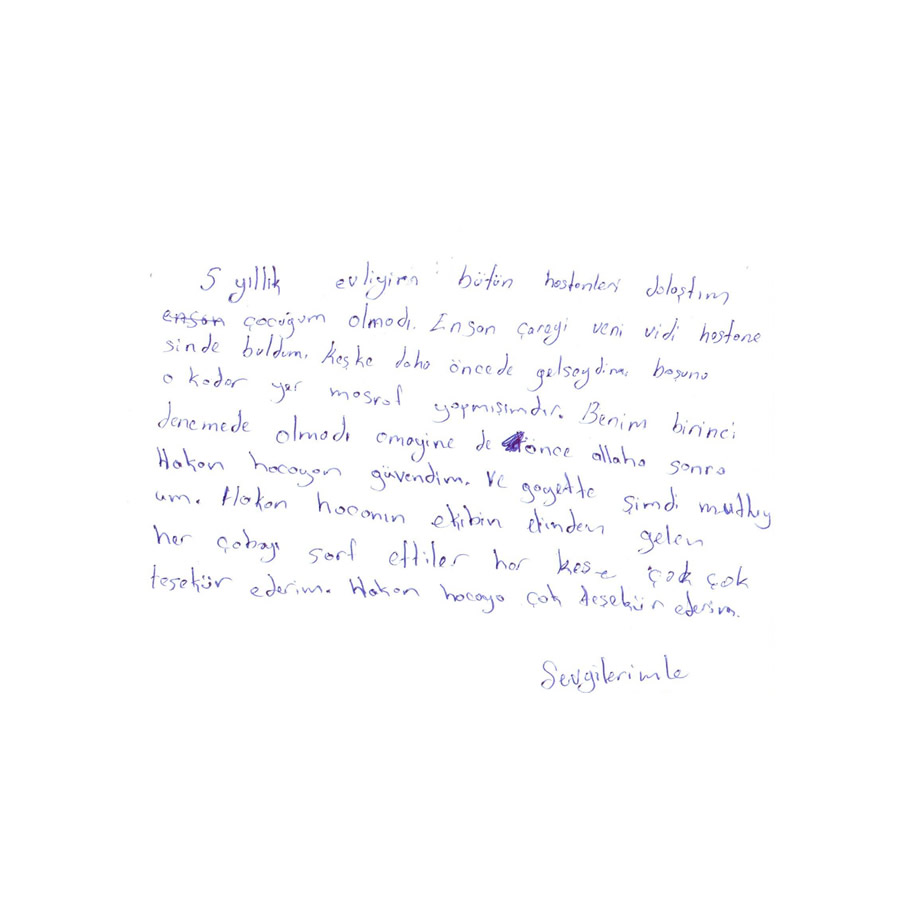 5 yıllık evliyim bütün hastenleri dolaştım
ensan çocuğum olmadı. Ensan çareyi veni vidi hastane
sinde buldum. Keşke daha öncede gelseydim boşuna
o kadar yer masraf yapmışımdır. Benim birinci
denemede olmadı amayine de önce allaha sonra
Hakan hocayan güvendim. Ve gayette şimdi mutluy
um. Hakan hocanın ekibin elinden gelen
her çabayı sarf ettiler her kese çok çok
teşekür ederim. Hakan hocaya çok teşekür ederim.
Sevgilerimle